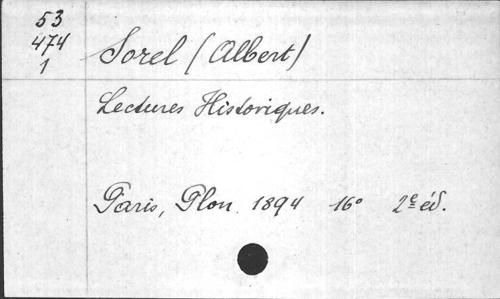 53
474
1
Sorel (Albert)
Lectures Historiques.
Paris, Plon. 1894 16° 2e éd.